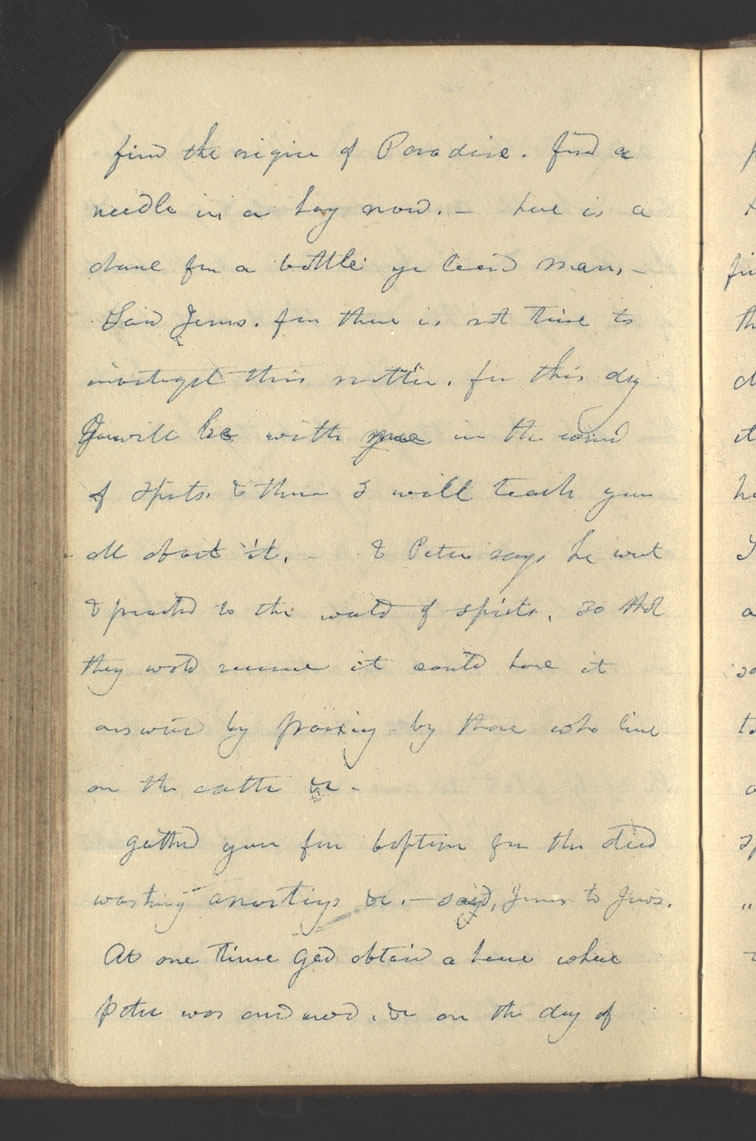 find the origin of Paradise. find a
needle in a hay mow. – here is a
chance for a bottle ye learnd man, –
Said Jesus. for there is not time to
investigate this matter. for this day
You will be with me in the world
of Spirits. & then I will teach you
all about it. – & Peter says he went
& preachd to the world of spirits. so that
they wold receive it could have it
answerd by proxing by those who live
on the earth &c –
gatherd you for baptism for the dead
washing anointings &c. – said, Jesus to Jews.
At one time God obtaind a house where
Peter was endowed. &c on the day of